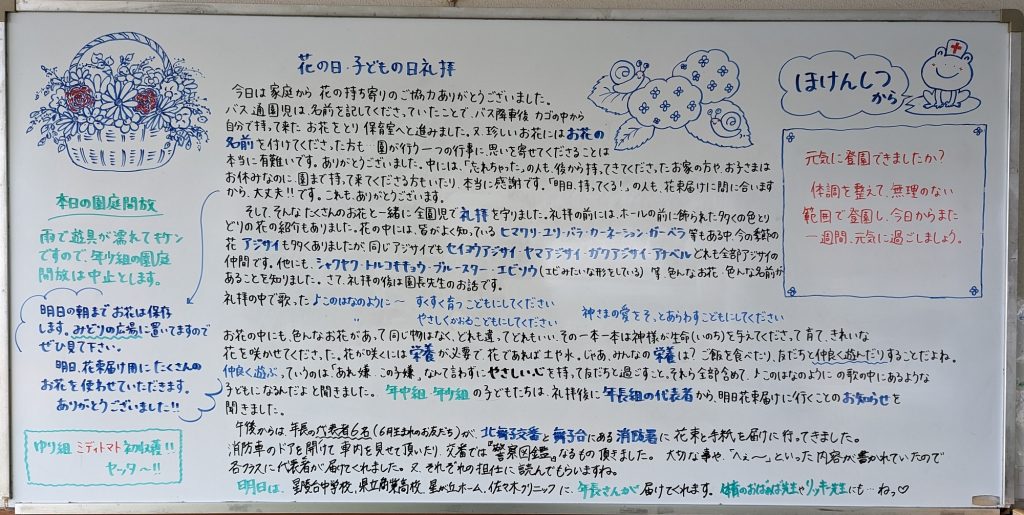 花の日・子どもの日礼拝
今日は家庭から花の持ち寄りのご協力ありがとうございました。
バス通園児は、名前を記してくださっていたことで、バス降車後カゴの中から
自分で持って来たお花をとり保育室へと進みました。又、珍しいお花にはお花の
名前を付けてくださった方も…園が行う一つの行事に、思いを寄せてくださることは
本当に有難いです。ありがとうございました。中には、「忘れちゃった」の人も、後から持ってきてくださったお家の方や、お子さまは
お休みなのに、園まで持って来てくださる方もいたり、本当に感謝です。「明日、持ってくる!」の人も、花束届けに間に合います
から、大丈夫!!です。これも、ありがとうございます。
そして、そんなたくさんのお花と一緒に全園児で礼拝を守りました。礼拝の前には、ホールの前に飾られた多くの色とり
どりの花の紹介もありました。花の中には、皆がよく知っているヒマワリ・ユリ・バラ・カーネーション・ガーベラ等もある中、今の季節の
花アジサイも多くありましたが、同じアジサイでもセイヨウアジサイ・ヤマアジサイ・ガクアジサイ・アナベルどれも全部アジサイの
仲間です。他にも、シャクヤク・トルコキキョウ・ブルースター・エビソウ(エビみたいな形をしている)等、色んなお花・色んな名前が
あることを知りました。さて、礼拝の後は園長先生のお話です。
礼拝の中で歌った♪このはなのように〜 すくすく育つこどもにしてください
〃 やさしくかおるこどもにしてください 神さまの愛をそっとあらわすこどもにしてください
お花の中にも、色んなお花があって同じ物はなく、どれも違ってどれもいい。その一本一本は神様が生命(いのち)を与えてくださって育て、きれいな
花を咲かせてくださった。花が咲くには栄養が必要で、花であれば土や水。じゃあ、みんなの栄養は?ご飯を食べたり、友だちと仲良く遊んだりすることだよね。
仲良く遊ぶっていうのは「あれ嫌、この子嫌」なんて言わずにやさしい心を持って友だちと過ごすこと。それら全部含めて、♪このはなのようにの歌の中にあるような
子どもになるんだよと聞きました。年中組・年少組の子どもたちは、礼拝後に年長組の代表者から、明日花束届けに行くことのお知らせを
聞きました。
午後からは、年長の代表者6名(6月生まれのお友だち)が、北舞子交番と舞子台にある消防署に花束と手紙を届けに行ってきました。
消防車のドアを開けて車内を見せて頂いたり、交番では『警察図鑑』なるもの頂きました。大切な事や、「へぇ〜」といった内容が書かれていたので
各クラスに代表者が届けてくれました。又、それぞれの担任に読んでもらいますね。
明日は、星陵台中学校、県立商業高校、星が丘ホーム、佐々木クリニックに、年長さんが届けてくれます。体育のおばのば先生やリッキー先生にも…ねっ♡
本日の園庭開放
雨で遊具が濡れてキケン
ですので、年少組の園庭
開放は中止とします。
明日の朝までお花は保存
します。みどりの広場に置いてますので
ぜひ見て下さい。
明日、花束届け用にたくさんの
お花を使わせていただきます。
ありがとうございました!!
ゆり組 ミディトマト初収穫!!
ヤッター!!
ほけんしつ
から
元気に登園できましたか?
体調を整えて、無理のない
範囲で登園し、今日からまた
一週間、元気に過ごしましょう。